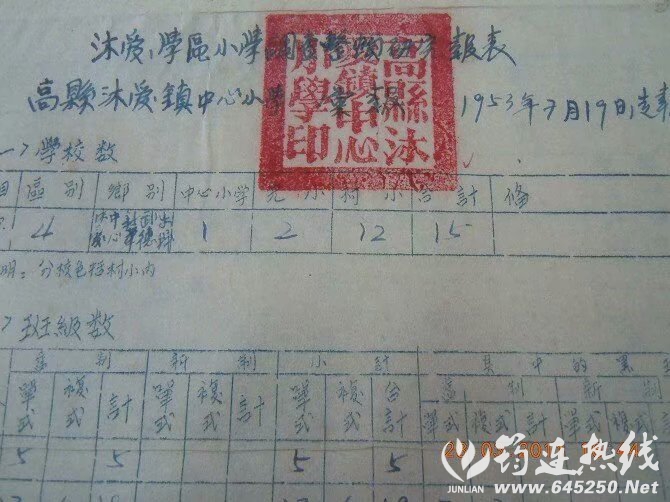 沐爱学區小学調查整頓初步報表
高縣沐爱鎮中心小学
1953年7月19日造表
高縣沐
爱鎮中心
小學印
一)學校数
區别 鄉别 中心小学 完小 村小 合計 備
4 1 2 12 15
明:分校包括村小内
班級数
舊制 新制 小計 其中的
單式 複式 計 單式 複式 計 單式 複式 合計 舊制 新制
單式 複式 計 單式 複式 計
5 5 5 5
筠连热线
JUNLIAN www.645250.Net